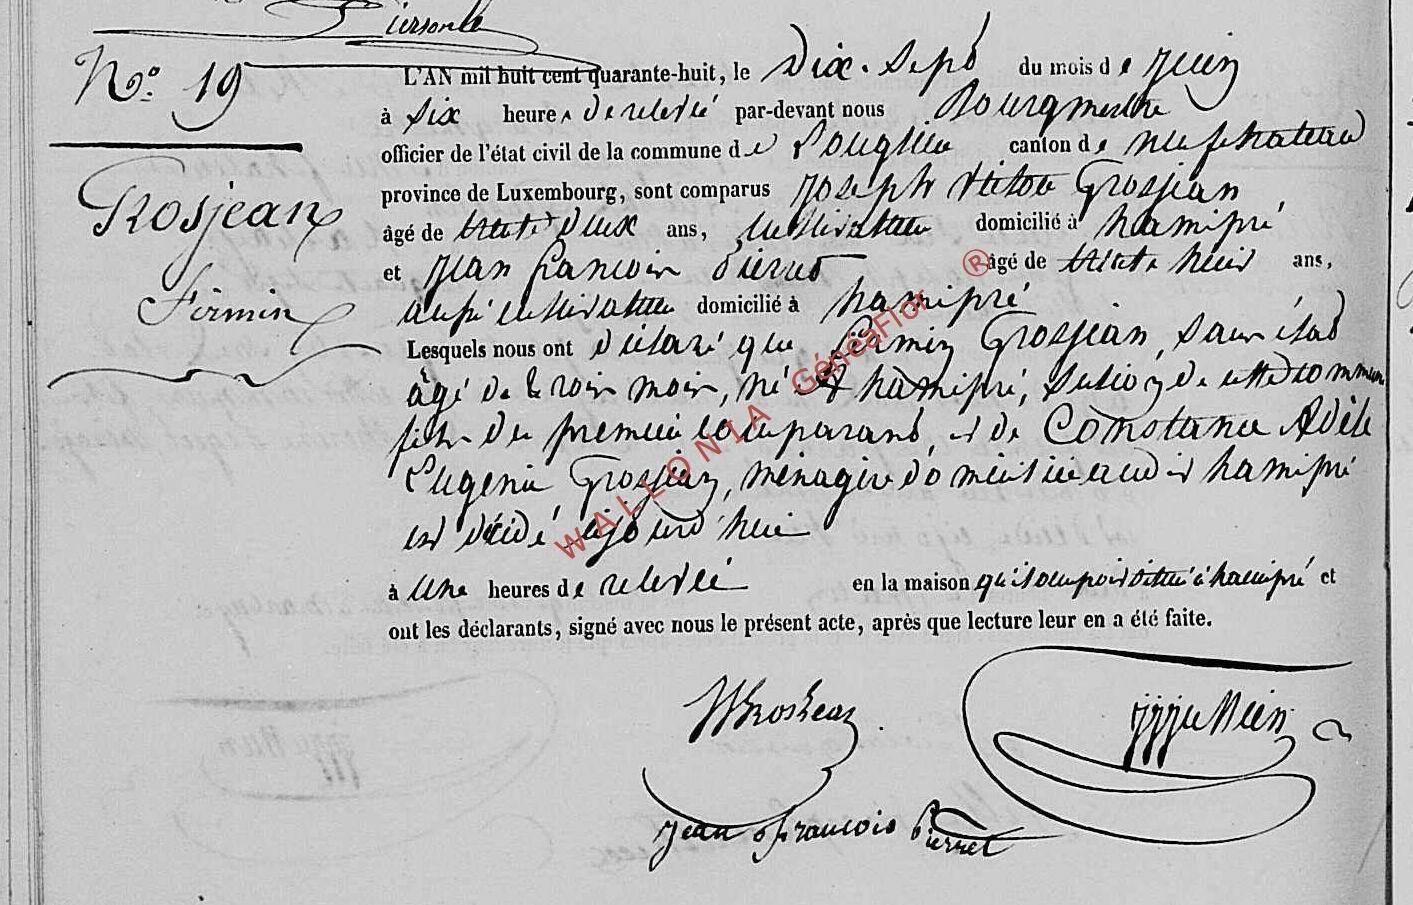 Pierson
N° 19
Grosjean
Firmin
L'AN mil huit cent quarante-huit, le Dix-sept du mois de Juin
à six heures de relevée par-devant nous Bourgmestre
officier de l'état civil de la commune de Longlier canton de neufchateau
province de Luxembourg, sont comparus Joseph Victor Grosjean
âgé de trente deux ans, cultivateur domicilié à hamipré
et Jean francois Pierret âgé de trente huit ans,
aussi cultivateur domicilié à hamipré
Lesquels nous ont déclaré que Firmin Grosjean, sans état
âgé de trois mois, né à hamipré, section de cette commune
fils du premier comparant, et de Constance Adèle
Eugenie Grosjean, ménagère domiciliée audit hamipré
est décédé aujourd'hui
à Une heures de relevée en la maison qu'il occupoit située à hamipré et
ont les déclarants, signé avec nous le présent acte, après que lecture leur en a été faite.
VGrosjean
Jean François Pierret
WALLONIA GénéaFlor ®